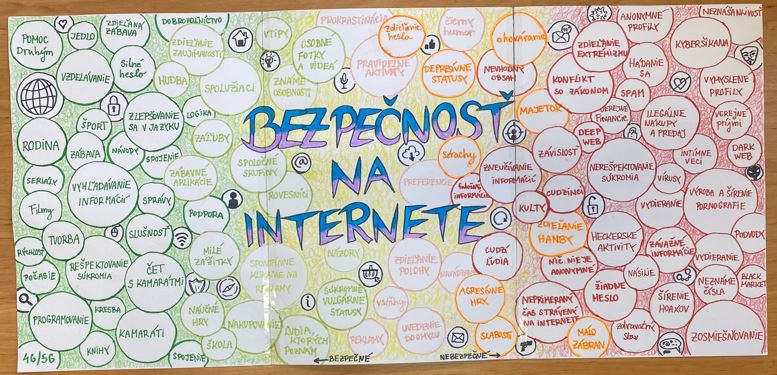 POMOC
Druhým
JEDLO
ZDIEĽANÁ
ZÁBAVA
DOBROVOĽNÍCTVO
VZDELÁVANIE
Silné
heslo
ZDIEĽANIE
ZAUJÍMAVOSTÍ
HUDBA
SPOLUŽIACI
VTIPY
OSOBNÉ
FOTKY
A VIDEÁ
ZNÁME
OSOBNOSTI
PROKRASTINÁCIA
PRAVIDELNÉ
AKTIVITY
ZDIEĽANIE
hesla
DEPRESÍVNE
STATUSY
čierny
humor
ohováranie
NEVHODNÝ
OBSAH
ZDIEĽANIE
EXTRÉMIZMU
KONFLIKT
SO ZÁKONOM
ANONYMNÉ
PROFILY
HÁDANIE
SA
SPAM
NEZNÁŠANLIVOSŤ
KYBERŠIKANA
VYMYSLENÉ
PROFILY
RODINA
ŠPORT
ZÁBAVA
NÁVODY
ZLEPŠOVANIE
SA V JAZYKU
LOGIKA
ZÁĽUBY
SPOJENIE
BEZPEČNOSŤ
NA
INTERNETE
MAJETOK
DEEP
WEB
VEREJNÉ
FINANCIE
ILEGÁLNE
NÁKUPY
A PREDAJ
VEREJNÉ
PRÍJMY
DARK
WEB
SERIÁLY
Filmy
VYHĽADÁVANIE
INFORMÁCIÍ
SPRÁVY
ZÁBAVNÉ
APLIKÁCIE
SPOLOČNÉ
SKUPINY
ROVESNÍCI
PODPORA
PREFERENCIE
strachy
ZNEUŽÍVANIE
INFORMÁCIÍ
ZÁVISLOSŤ
CUDZINCI
KULTY
NEREŠPEKTOVANIE
SÚKROMIA
INTÍMNE
VECI
VÍRUSY
VYDIERANIE
VÝROBA A ŠÍRENIE
PORNOGRAFIE
TVORBA
RÝCHLOSŤ
POČASIE
REŠPEKTOVANIE
SÚKROMIA
SLUŠNOSŤ
ČET
S KAMARÁTMI
MILÉ
ZÁŽITKY
SPONTÁNNE
KLIKANIE NA
REKLAMY
NÁZORY
ZDIEĽANIE
POLOHY
CUDZÍ
ĽUDIA
ZDIEĽANIE
HANBY
NIČ NIE JE
ANONYMNÉ
HECKERSKÉ
AKTIVITY
ZÁVAŽNÉ
INFORMÁCIE
NÁSILIE
VYDIERANIE
PODVODY
BLACK
MARKET
NEZNÁME
ČÍSLA
PROGRAMOVANIE
KRESBA
KNIHY
KAMARÁTI
SPOJENIE
NÁUČNÉ
HRY
ŠKOLA
NAKUPOVANIE
ĽUDIA
KTORÝCH
POZNÁM
SÚKROMIE
VULGÁRNE
STATUSY
vzťahy
REKLAMY
UVEDENIE
DO OMYLU
AGRESÍVNE
HRY
SLABOSTI
NEPRIMERANÝ
ČAS STRÁVENÝ
NA INTERNETE
ŽIADNE
HESLO
MÁLO
ZÁBRAN
zdravotný
stav
ŠÍRENIE
HOAXOV
ZOSMIEŠŇOVANIE
46/56
← BEZPEČNE
NEBEZPEČNE →